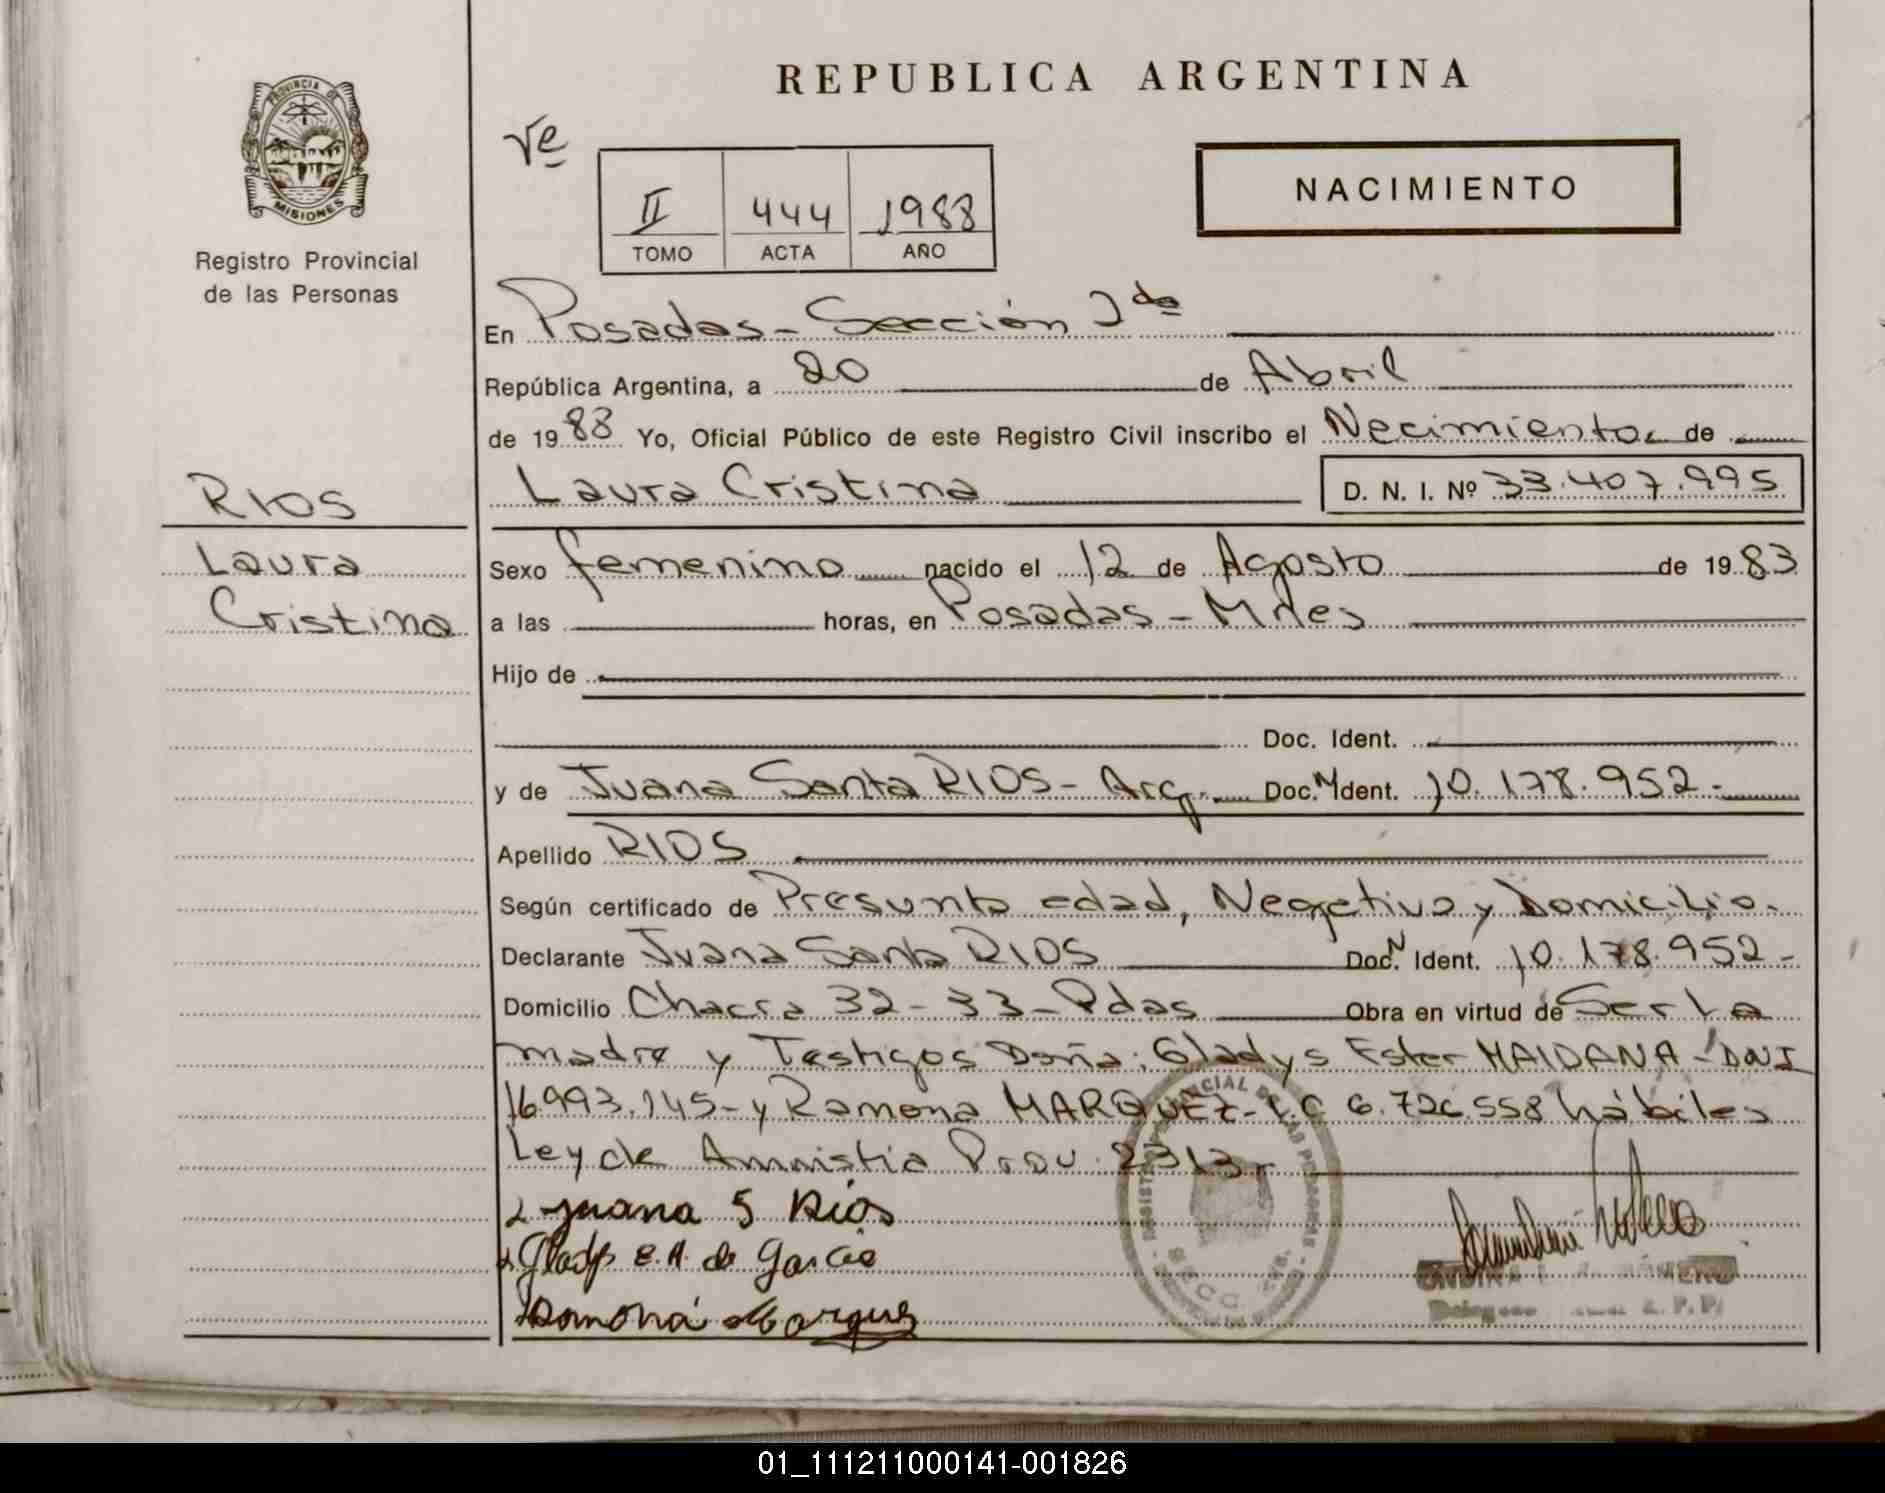 REPUBLICA ARGENTINA
PROVINCIA DE
MISIONES
Registro Provincial
de las Personas
Ve
II 444 1988
TOMO ACTA AÑO
NACIMIENTO
En Posadas - Sección 2da
República Argentina, a 20 de Abril
de 1988 Yo, Oficial Público de este Registro Civil inscribo el Necimiento de
Laura Cristina D. N. I. Nº 33.407.995
RIOS
Laura
Cristina
Sexo femenino nacido el 12 de Agosto de 1983
a las horas, en Posadas - Mnes
Hijo de
Doc. Ident.
y de Juana Santa RIOS - Arg. Doc. N Ident. 10.178.952-
Apellido RIOS
Según certificado de Presunta edad, Negativo y Domicilio.
Declarante Juana Santa RIOS Doc. N Ident. 10.178.952-
Domicilio Chacra 32-33- Pdas Obra en virtud de Ser La
madre y Testigos Doña: Gladys Ester MAIDANA - DNI
16.993.145- y Ramona MARQUEZ - L.C 6.726.558 hábiles
Ley de Amnistia Prov. 2313-
Juana S Rios
Gladys E. M. de Garcia
Ramona Marquez
01_111211000141-001826